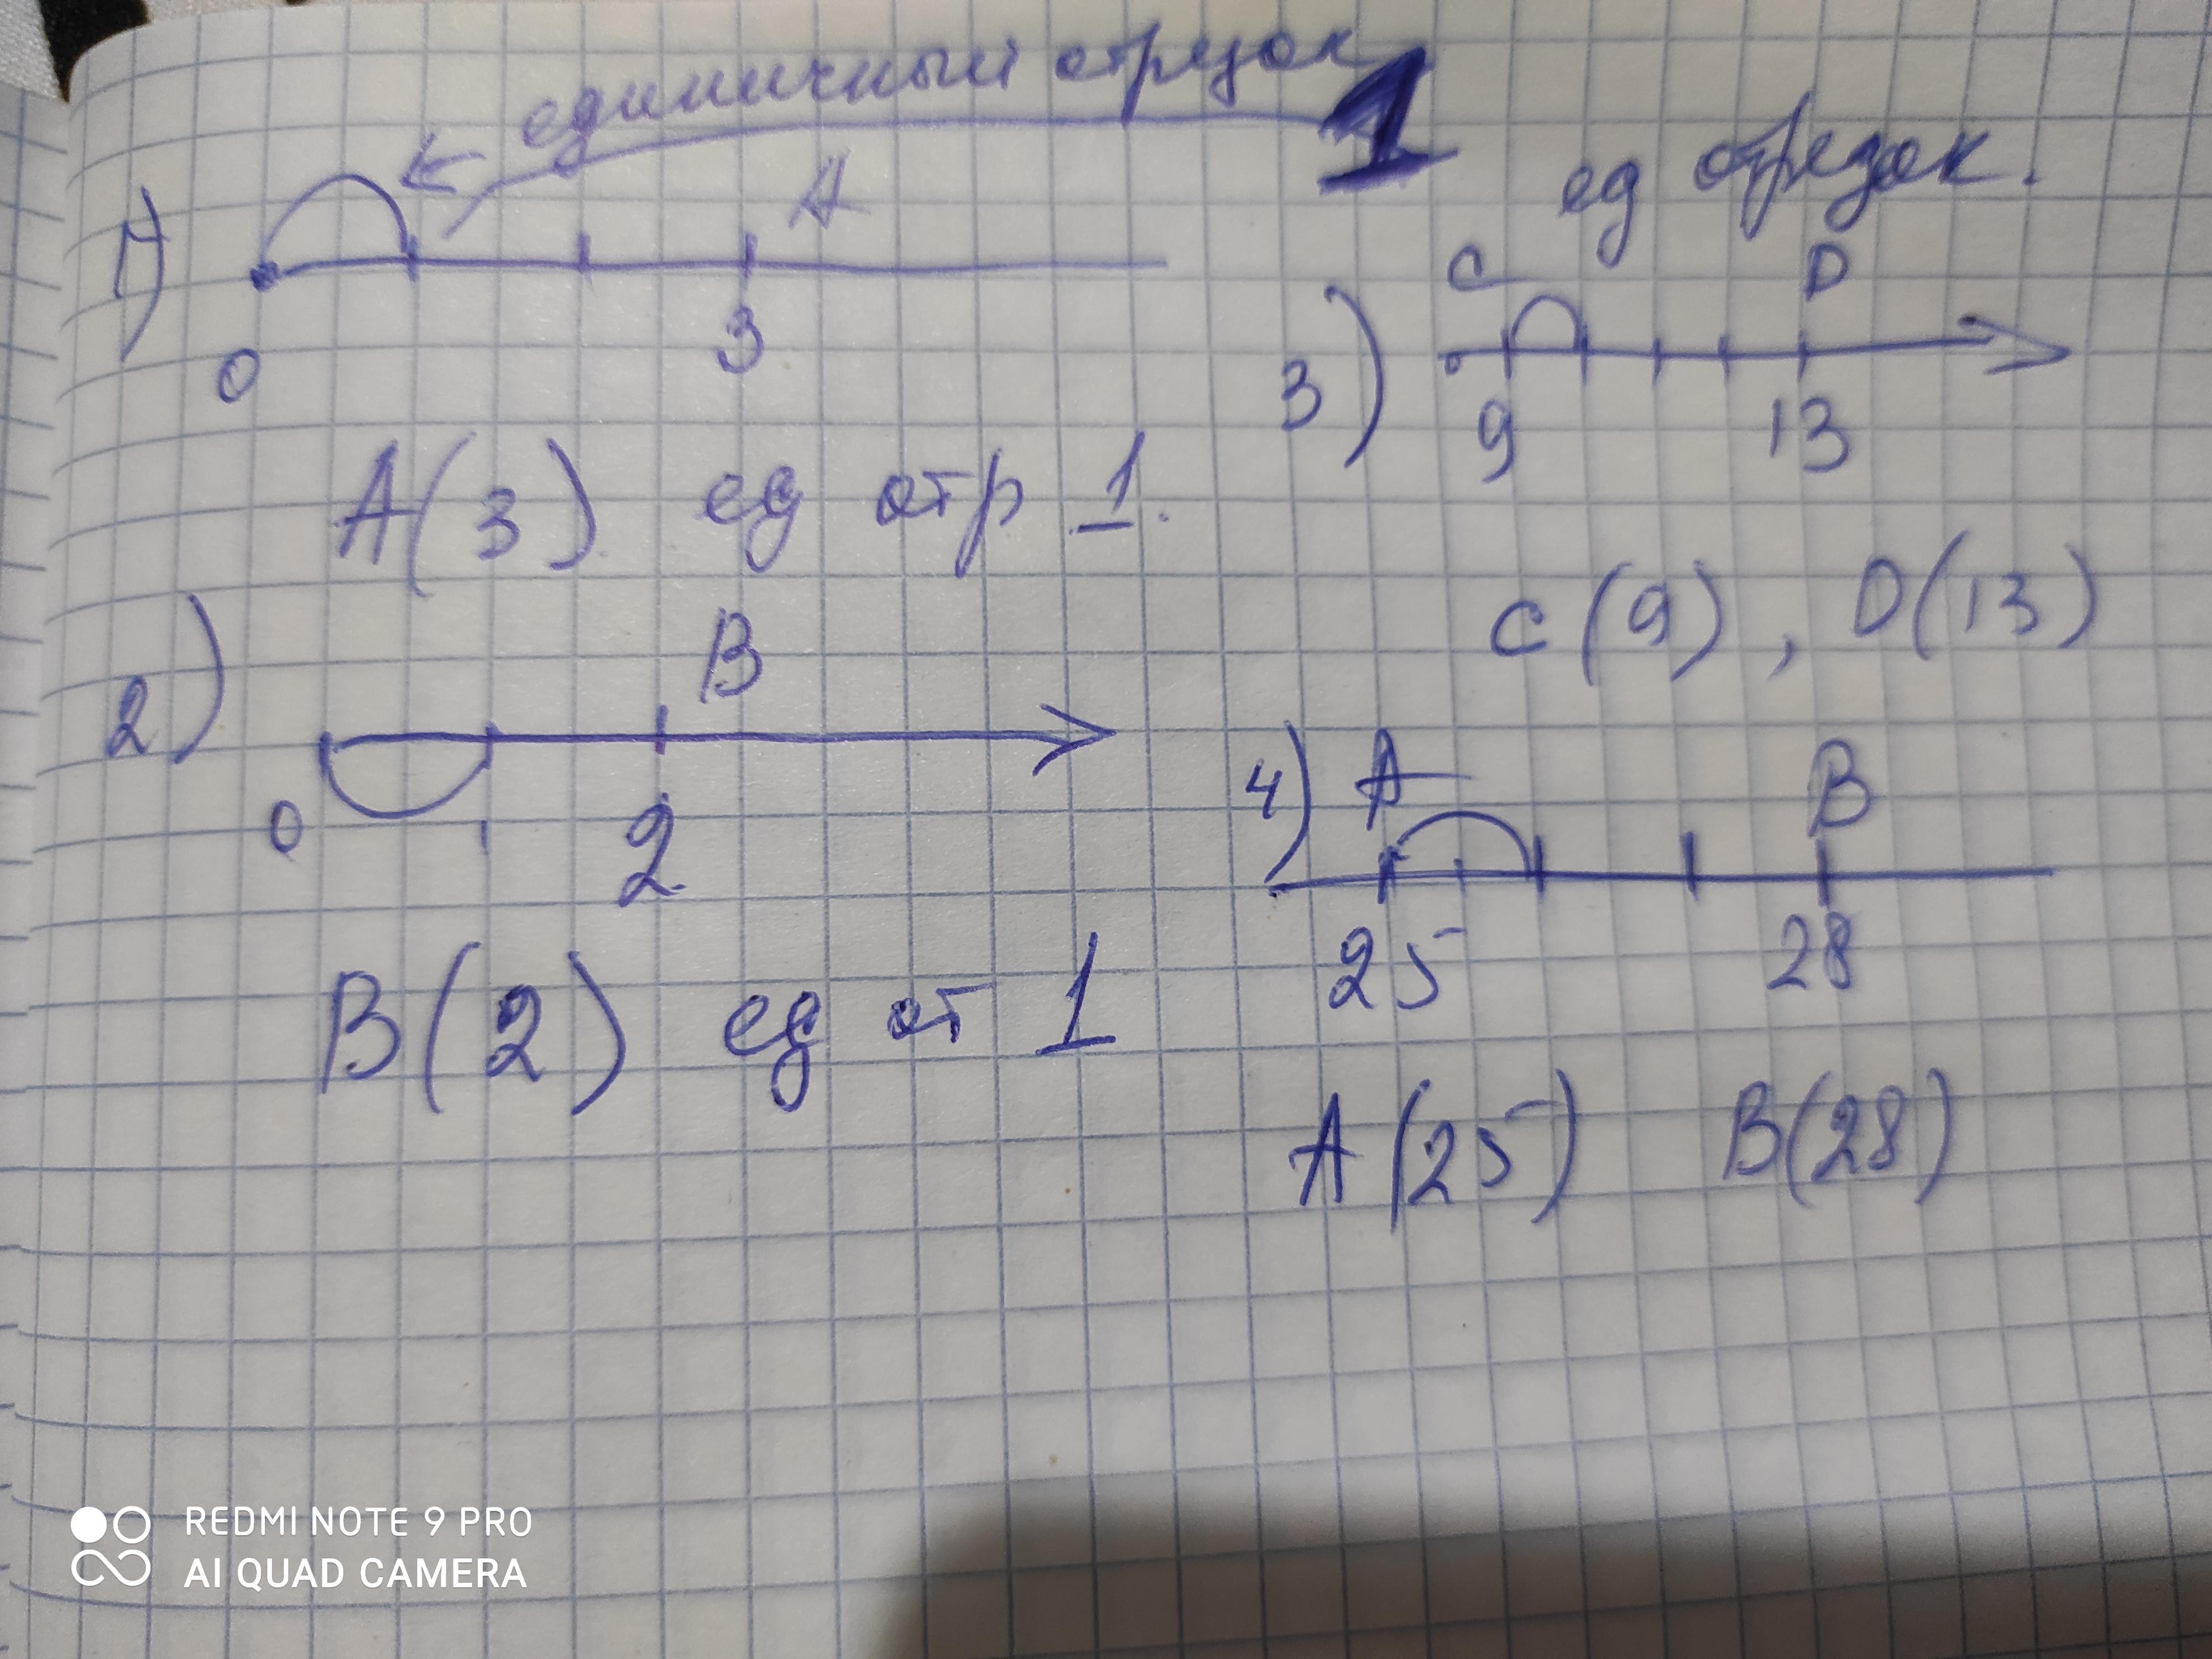 единичный отрезок 1
1)
A
0 3
A(3) ед отр 1.
2)
B
0 2
B(2) ед от 1
ед отрезок.
3)
C D
9 13
C(9), D(13)
4) A B
25 28
A(25) B(28)
REDMI NOTE 9 PRO
AI QUAD CAMERA